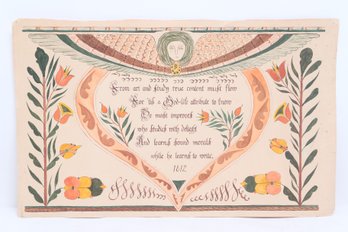 From art and study true content must flow
For 'tis a God-like attribute to know
He most improves
who studies with delight
And learns sound morals
while he learns to write.
1812